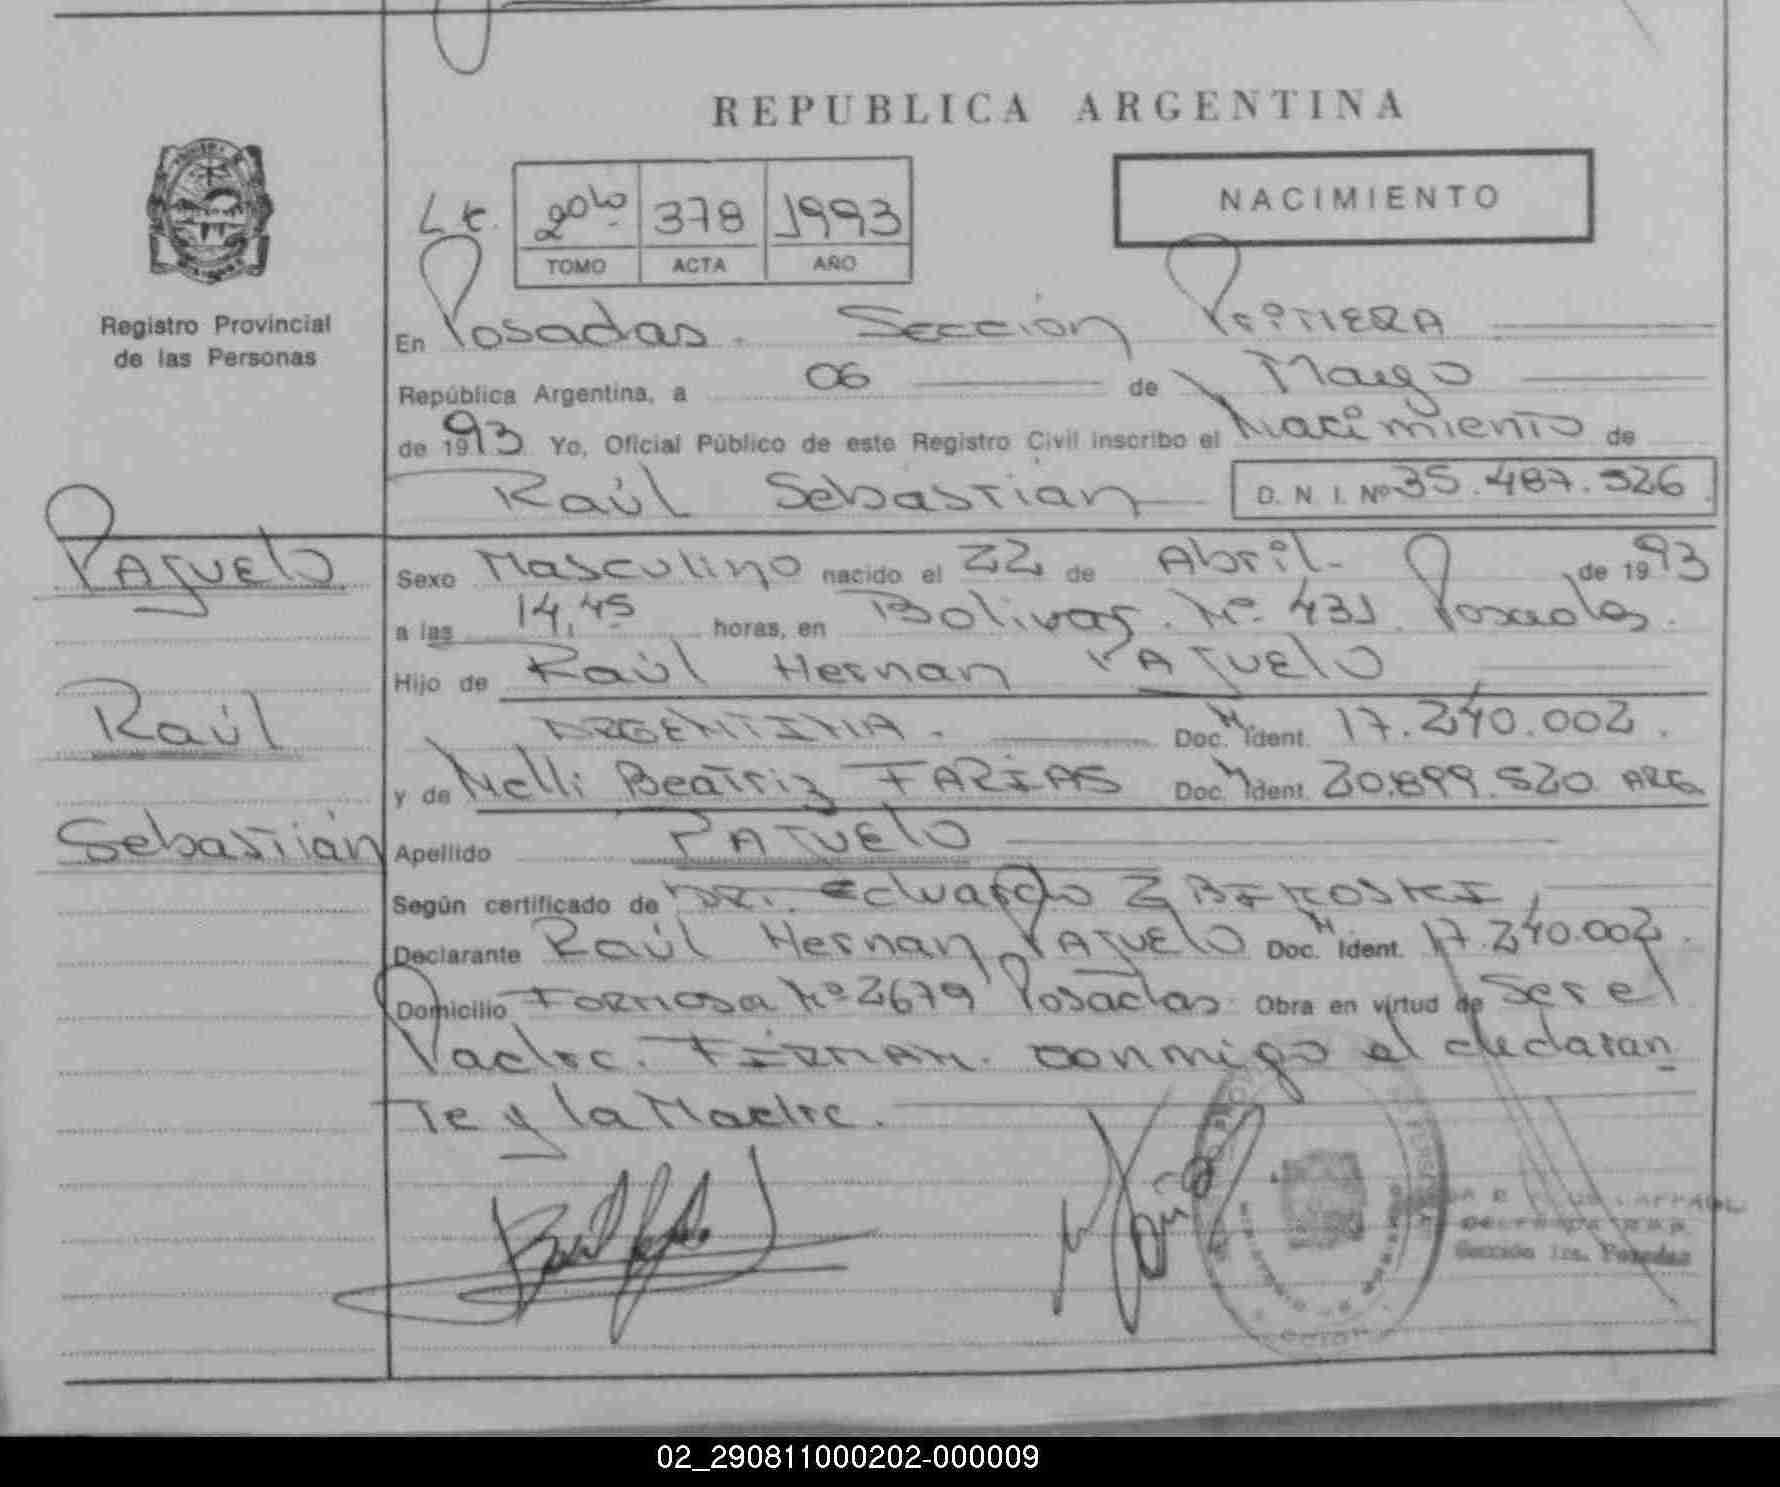 REPUBLICA ARGENTINA
NACIMIENTO
Lt. 2do 378 1993
TOMO ACTA AÑO
Registro Provincial
de las Personas
En Posadas. Sección Primera
República Argentina, a 06 de Mayo
de 1993 Yo, Oficial Público de este Registro Civil inscribo el Nacimiento de
Raúl Sebastián D. N. I. Nº 35.487.526
PAJUELO
Raúl
Sebastián
Sexo Masculino nacido el 22 de Abril de 1993
a las 14,45 horas, en Bolivar Nº 431 Posadas.
Hijo de Raúl Hernan PAJUELO
ARGENTINA. Doc. M Ident. 17.240.002.
y de Nelli Beatriz FARIAS Doc. Ident. 20.899.520 ARG
Apellido PAJUELO
Según certificado de DR. Eduardo ZBIKOSKI
Declarante Raúl Hernan PAJUELO Doc. M Ident. 17.240.002.
Domicilio Formosa Nº 2679 Posadas Obra en virtud de Ser el
Padre. FIRMAN. conmigo el declaran
te y la Madre.
Sección 1ra. Posadas
02_290811000202-000009